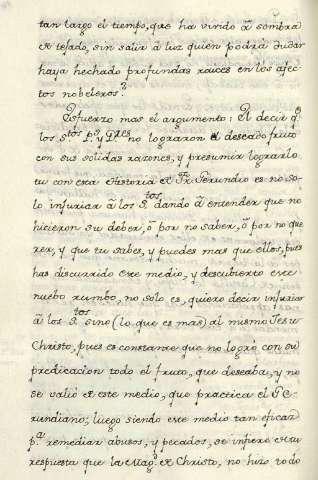 tan largo el tiempo, que ha vivido â sombra
de tejado, sin salir â luz quien podrâ dudar
haya hechado profundas raices en los afec-
tos nobeleros.?
Esfuerzo mas el argumento: El decir qe
los Stos Ps y Dres no lograron el deseado fruto
con sus solidas razones, y presumir lograrlo
tu con esta Historia de Fr. Gerundio es no so-
lo injuriar â los Stos dando â entender que no
hicieron su deber, ô por no saber, ô por no que
rer, y que tu sabes, y puedes mas que ellos, pues
has discurrido este medio, y descubierto este
nuebo rumbo, no solo es, quiero decir injuriar
â los Stos sino (lo que es mas) al mismo Jesu
Christo, pues es constante que no logrô con su
predicacion todo el fruto, que deseaba, y no
se valiô de este medio, que practica el Ge-
rundiano; luego siendo este medio tan eficaz
pa remediar abusos, y pecados, se infiere de tu
respuesta que la Magd de Christo, no hizo todo